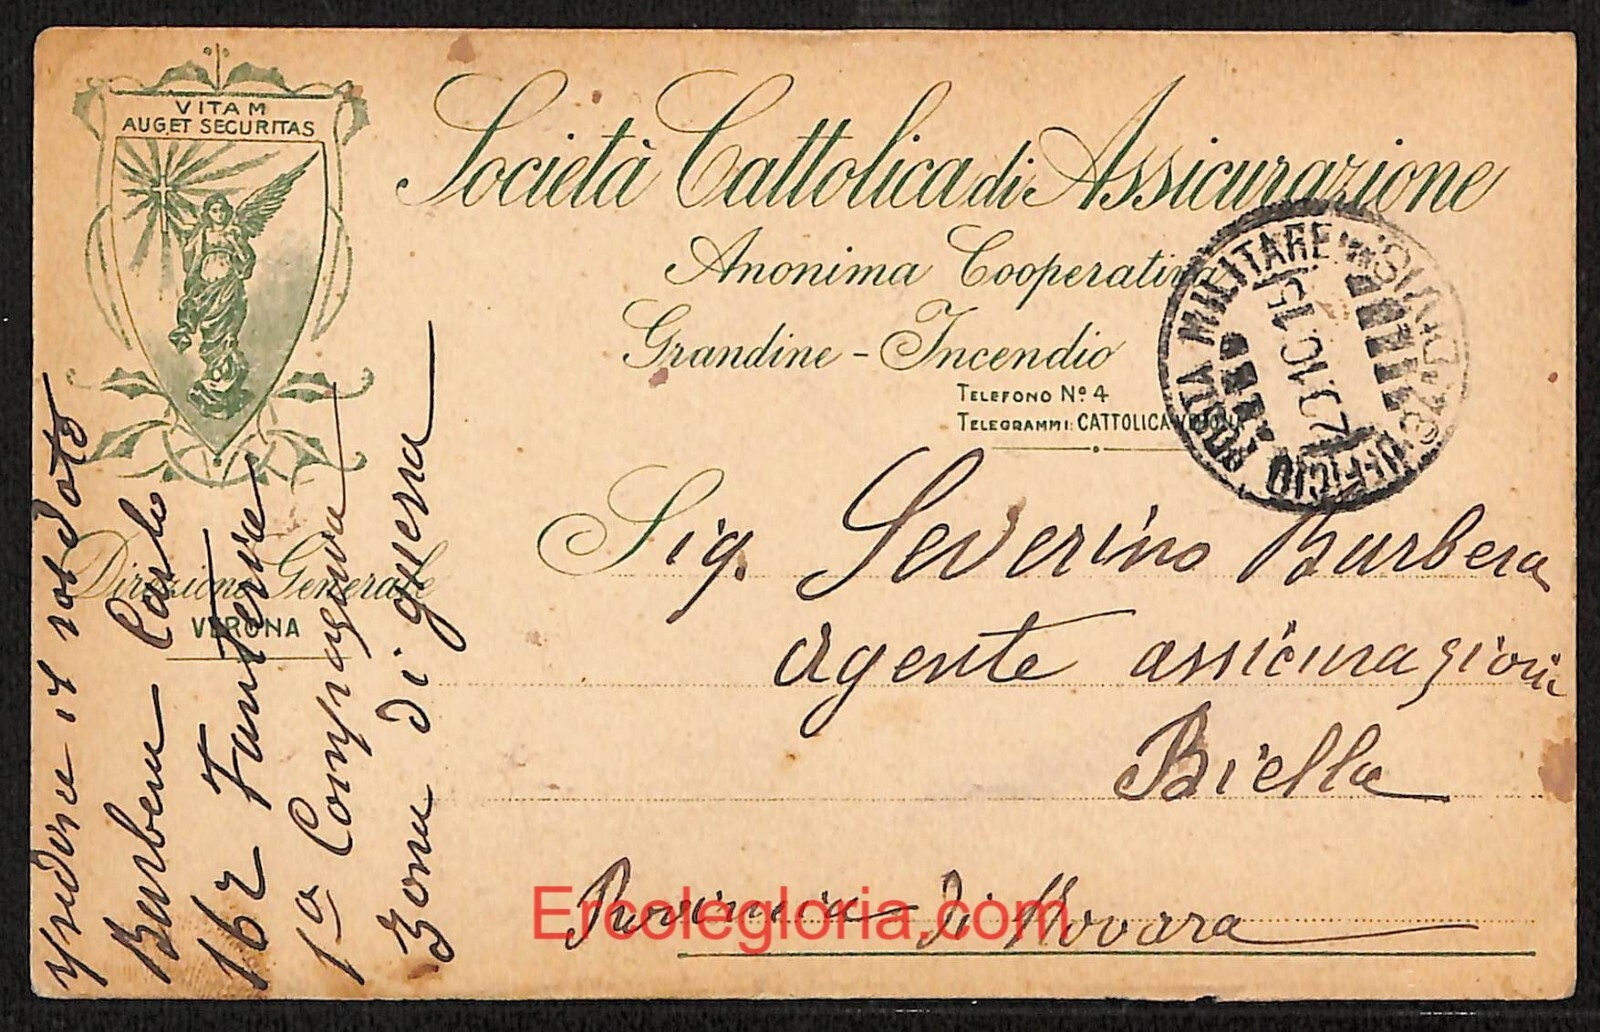 VITAM
AUGET SECURITAS
Società Cattolica di Assicurazione
Anonima Cooperativa
Grandine - Incendio
TELEFONO Nº 4
TELEGRAMMI: CATTOLICA VERONA
UFFICIO POSTA MILITARE
34ª DIVIS
Direzione Generale
VERONA
Sig. Severino Barbera
Agente assicurazioni
Biella
Provincia di Novara
il soldato
Barbera Carlo
162 Fanteria
1ª Compagnia
Zona di guerra
Ercolegloria.com